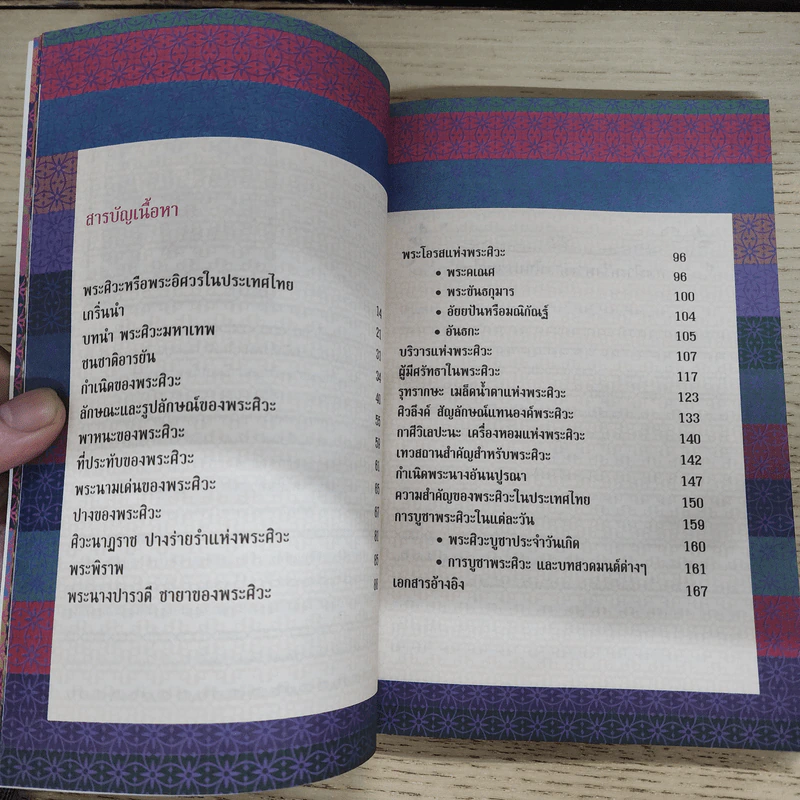 สารบัญเนื้อหา
พระศิวะหรือพระอิศวรในประเทศไทย
เกริ่นนำ 14
บทนำ พระศิวะมหาเทพ 21
ชนชาติอารยัน 31
กำเนิดของพระศิวะ 34
ลักษณะและรูปลักษณ์ของพระศิวะ 40
พาหนะของพระศิวะ 55
ที่ประทับของพระศิวะ 59
พระนามเด่นของพระศิวะ 61
ปางของพระศิวะ 65
ศิวะนาฏราช ปางร่ายรำแห่งพระศิวะ 67
พระพิราพ 81
พระนางปารวตี ชายาของพระศิวะ 85
พระโอรสแห่งพระศิวะ 96
• พระคเณศ 96
• พระขันธกุมาร 100
• อัยยปันหรือมณิกัณฐ์ 104
• อันธกะ 105
บริวารแห่งพระศิวะ 107
ผู้มีศรัทธาในพระศิวะ 117
รุทรากษะ เมล็ดน้ำตาแห่งพระศิวะ 123
ศิวลึงค์ สัญลักษณ์แทนองค์พระศิวะ 133
กาศีวิเลปะนะ เครื่องหอมแห่งพระศิวะ 140
เทวสถานสำคัญสำหรับพระศิวะ 142
กำเนิดพระนางอันนปูรณา 147
ความสำคัญของพระศิวะในประเทศไทย 150
การบูชาพระศิวะในแต่ละวัน 159
• พระศิวะบูชาประจำวันเกิด 160
• การบูชาพระศิวะ และบทสวดมนต์ต่างๆ 161
เอกสารอ้างอิง 167